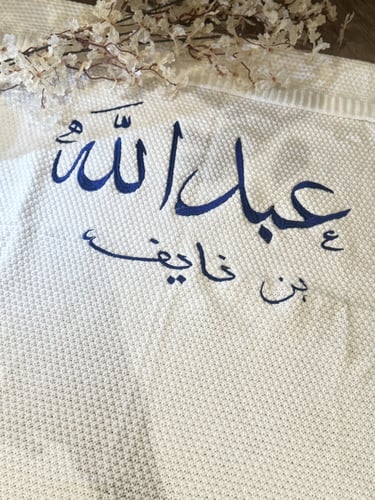 عبدالله
بن نايف